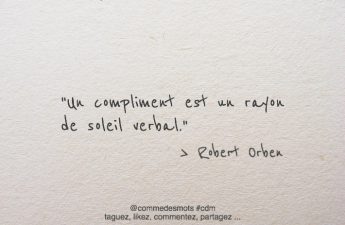 "Un compliment est un rayon
de soleil verbal."
> Robert Orben
@commedesmots #cdm
taguez, likez, commentez, partagez ...